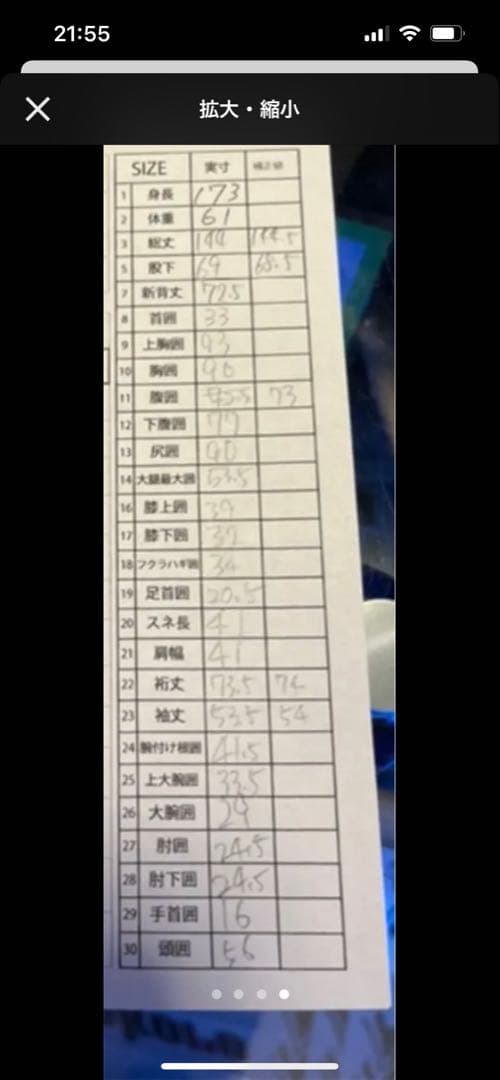 21:55
拡大・縮小
SIZE 実寸
1 身長 173
2 体重 61
3 総丈 144 144.5
5 股下 69 68.5
7 新背丈 77.5
8 首囲 33
9 上胸囲 93
10 胸囲 90
11 腹囲 73
12 下腹囲 77
13 尻囲 90
14 大腿最大囲 53.5
16 膝上囲 39
17 膝下囲
18 フクラハギ囲 34
19 足首囲 20.5
20 スネ長 41
21 肩幅 41
22 裄丈 73.5 74
23 袖丈 53.5 54
24 腕付け根囲 41.5
25 上大腕囲 33.5
26 大腕囲 29
27 肘囲 24.5
28 肘下囲 24.5
29 手首囲 16
30 頭囲 56